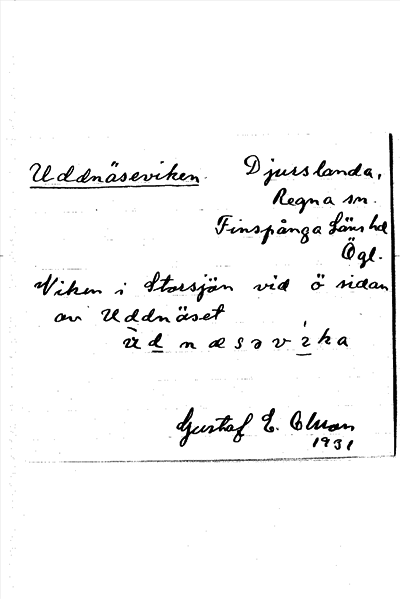 Uddnäseviken. Djurslanda,
Regna sn.
Finspånga Läns hd
Ögl.
Viken i Storsjön vid ö sidan
av Uddnäset
Gustaf E.
1931